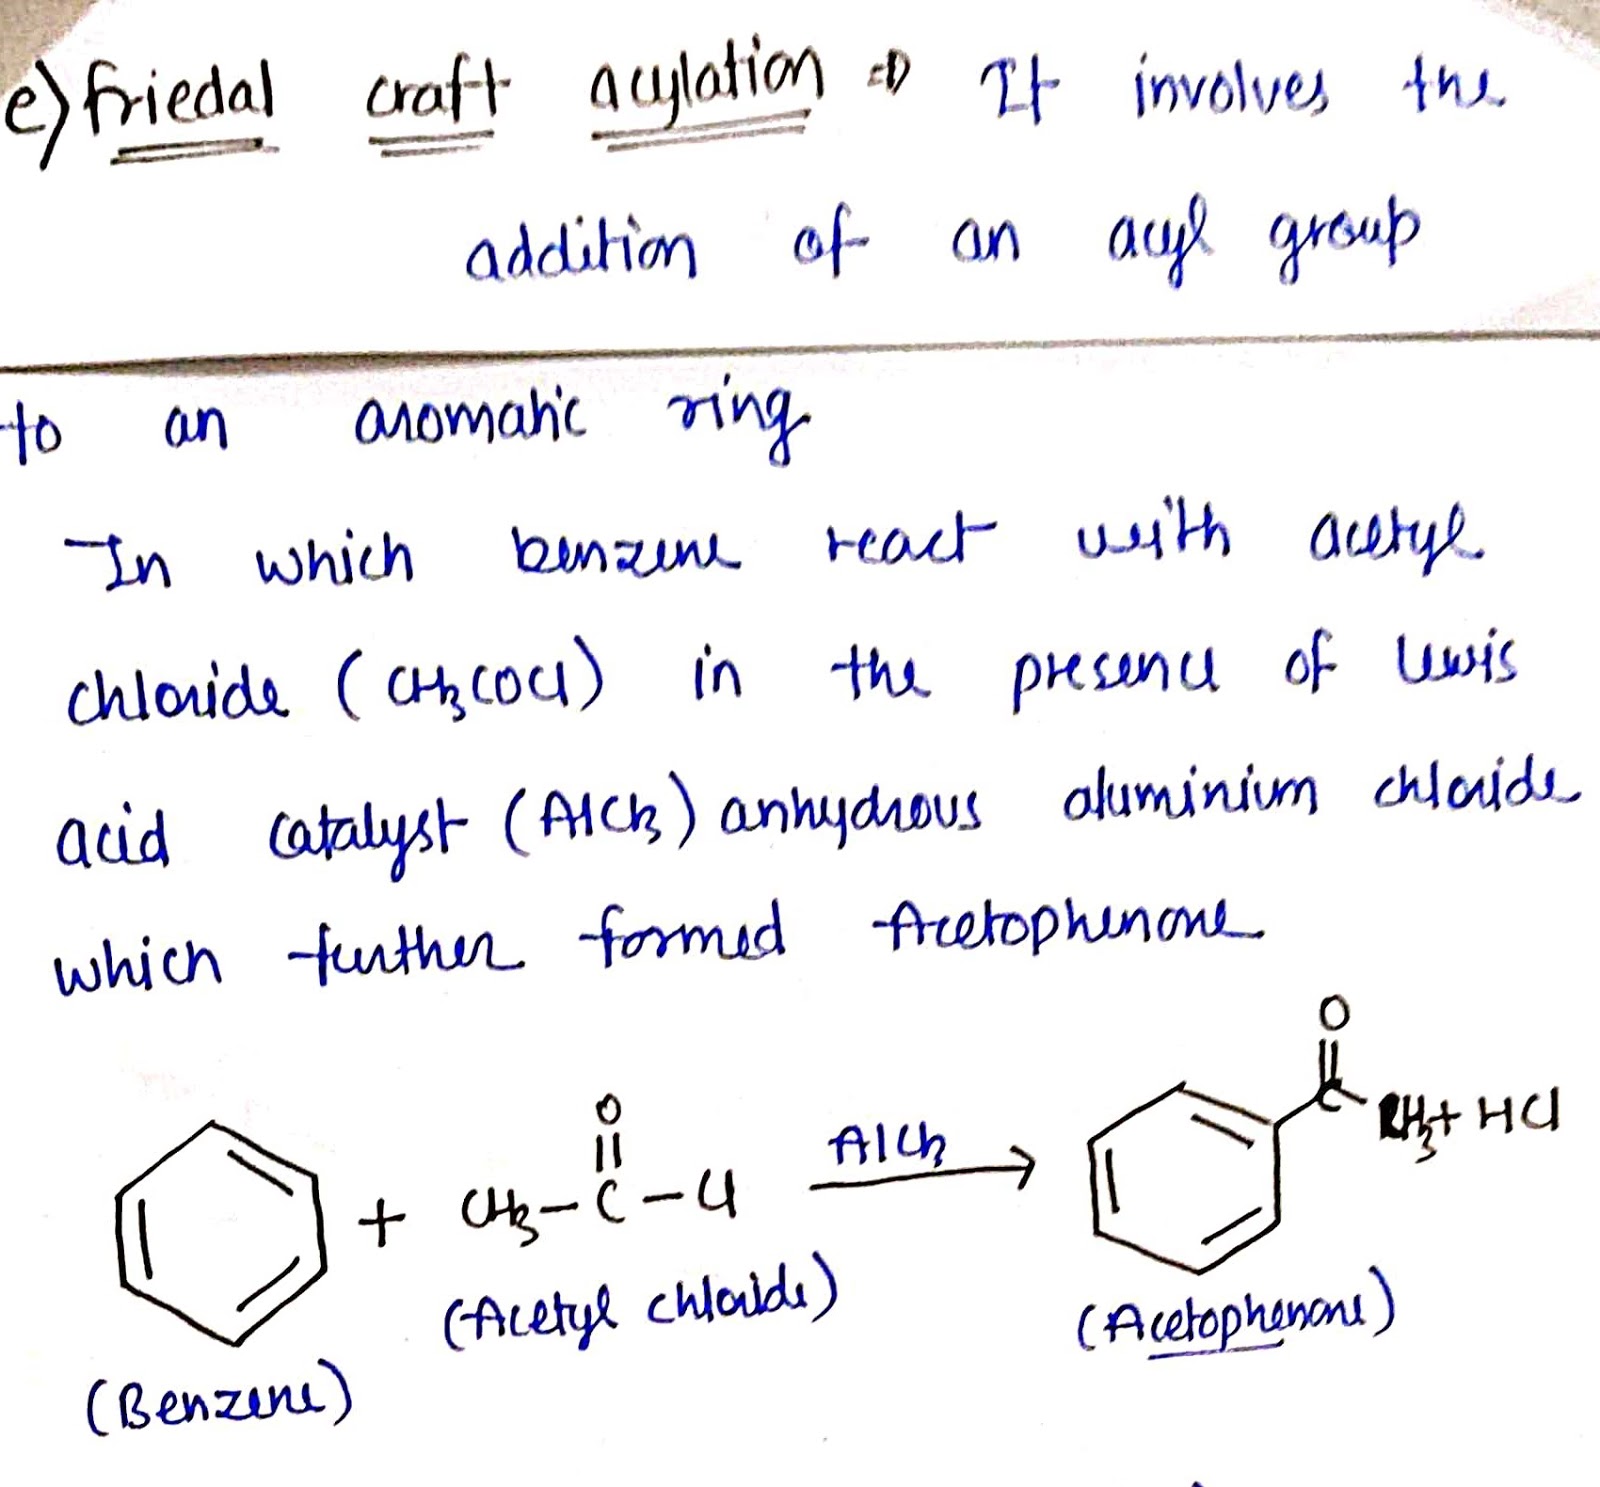 e) friedal craft acylation ⇒ It involves the
addition of an acyl group
to an aromatic ring
In which benzene react with acetyl
chloride (CH3COCl) in the presence of lewis
acid catalyst (AlCl3) anhydrous aluminium chloride
which further formed Acetophenone
O
C
CH3 + HCl
O
+ CH3-C-Cl
AlCl3
(Acetyl chloride)
(Acetophenone)
(Benzene)